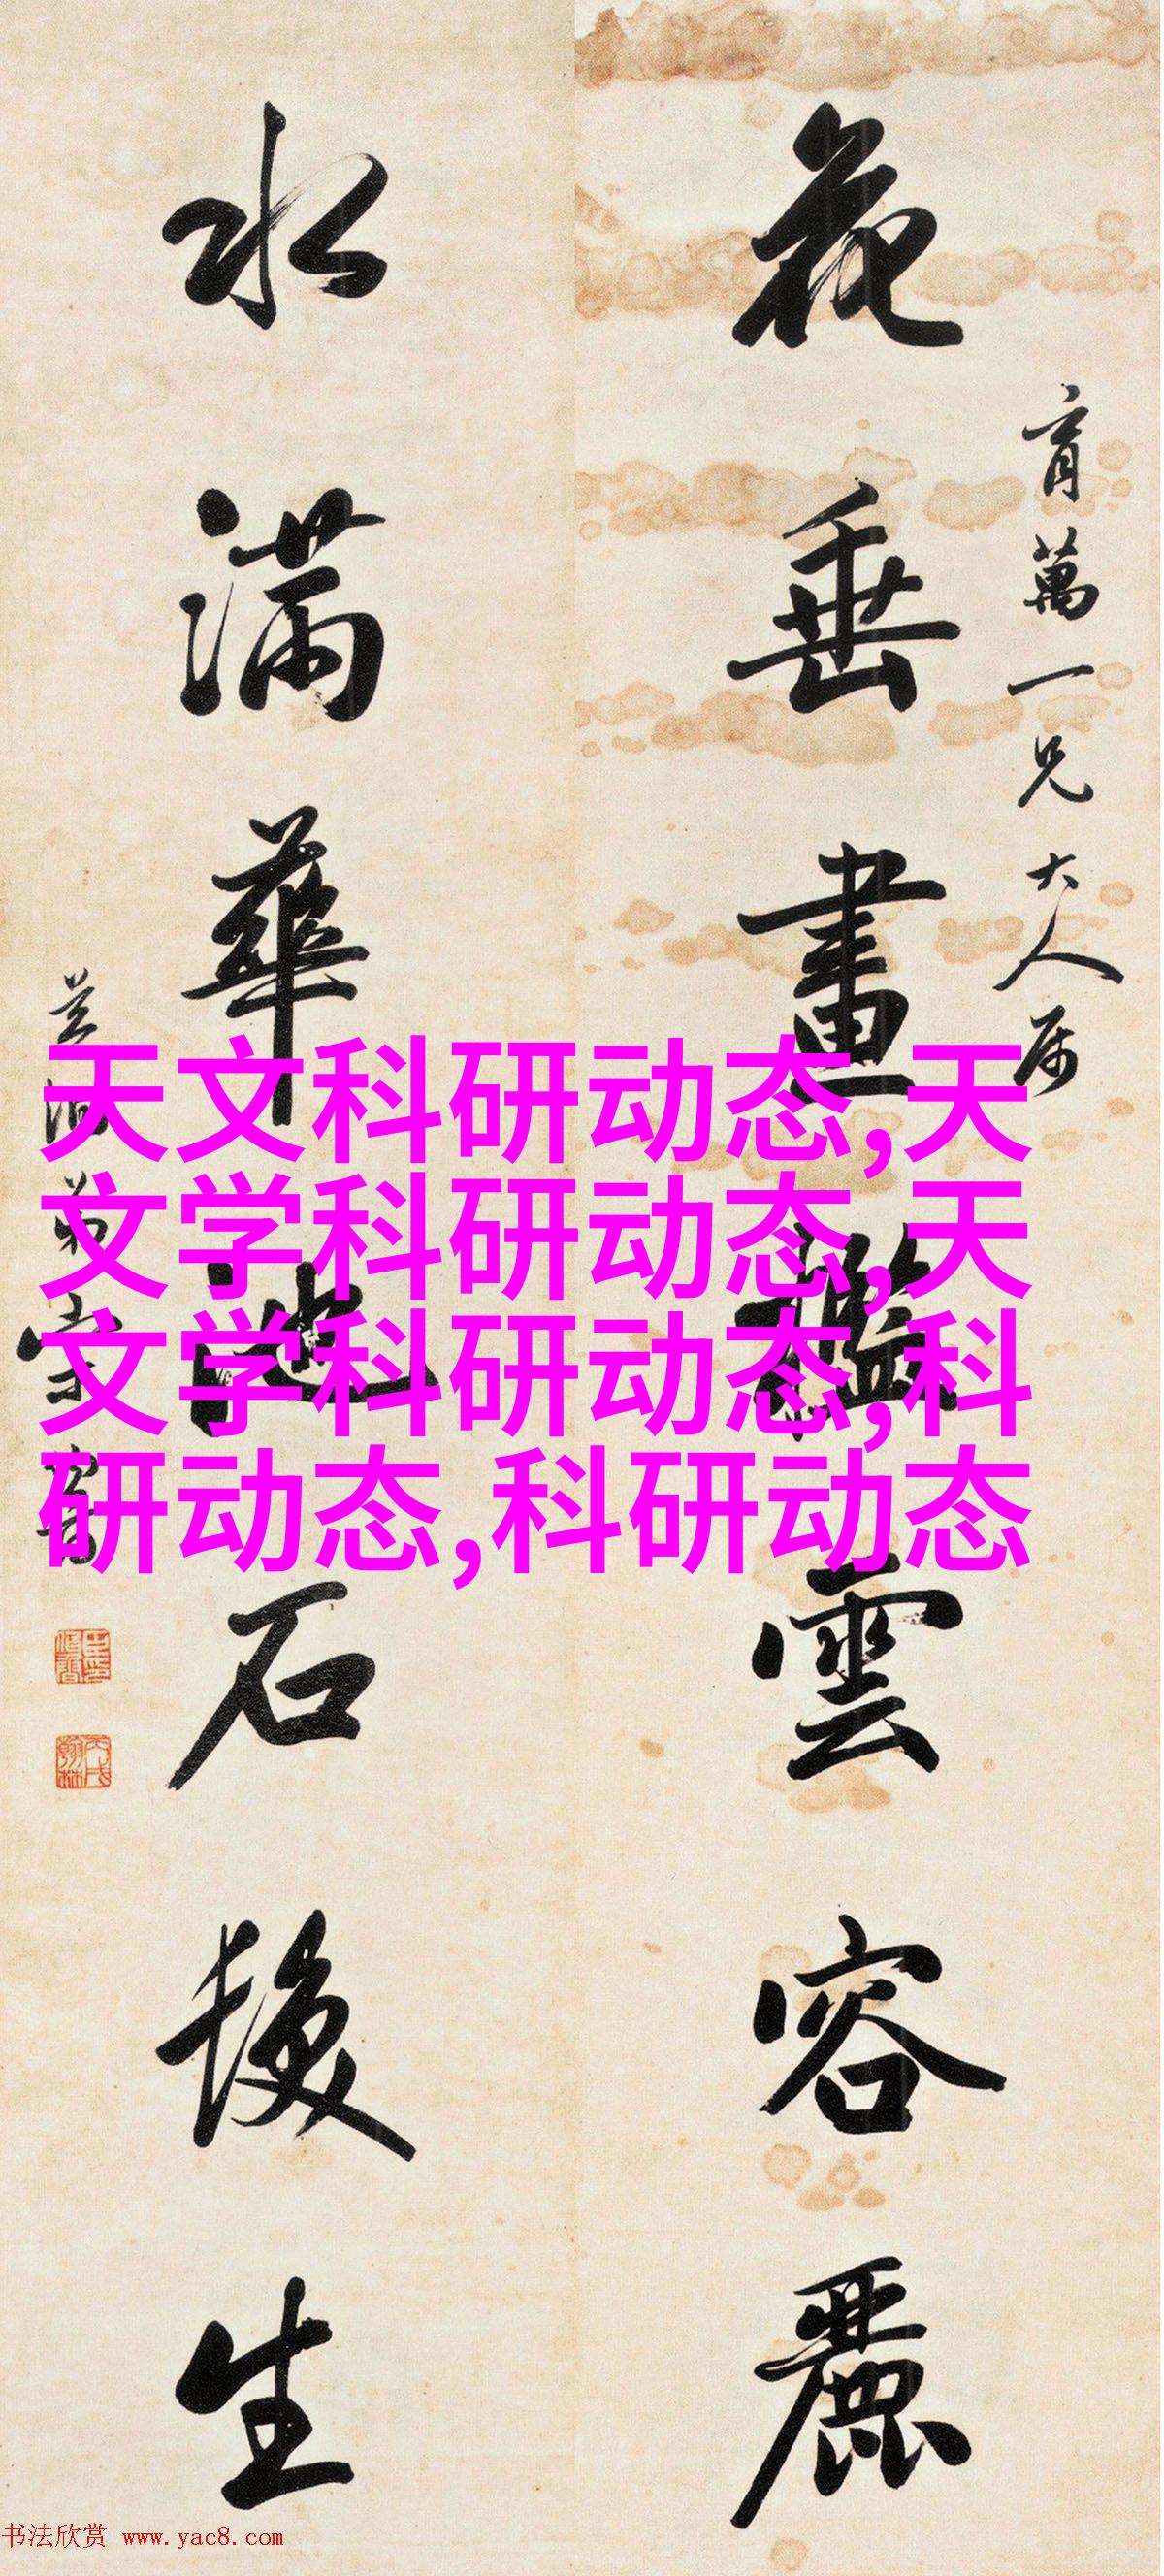 花垂畫檻雲容麗
育萬一兄大人属
水滿華池石髮生
天文科研动态,天
文学科研动态,天
文学科研动态,科
研动态,科研动态
丙戌翰林
书法欣赏 www.yac8.com